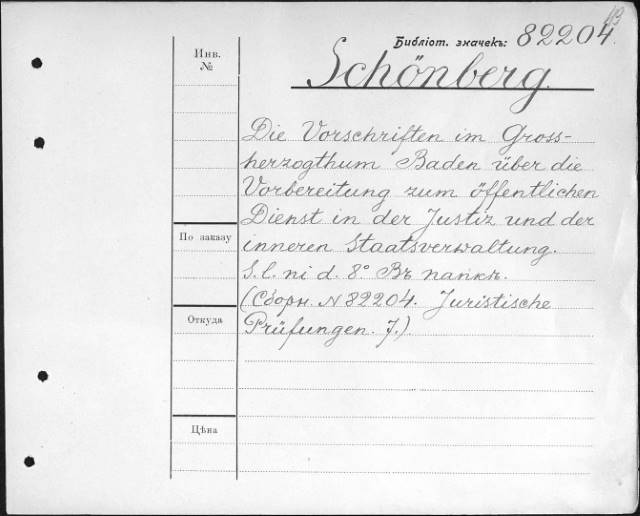 Библіот. значекъ: 82204.
Инв.
№
Schönberg.
Die Vorschriften im Gross-
herzogthum Baden über die
Vorbereitung zum öffentlichen
Dienst in der Justiz und der
По заказу
inneren Staatsverwaltung.
S. l. ni d. 8° Въ папкѣ.
(Сборн. N 82204. Juristische
Откуда
Prüfungen. 7.)
Цѣна